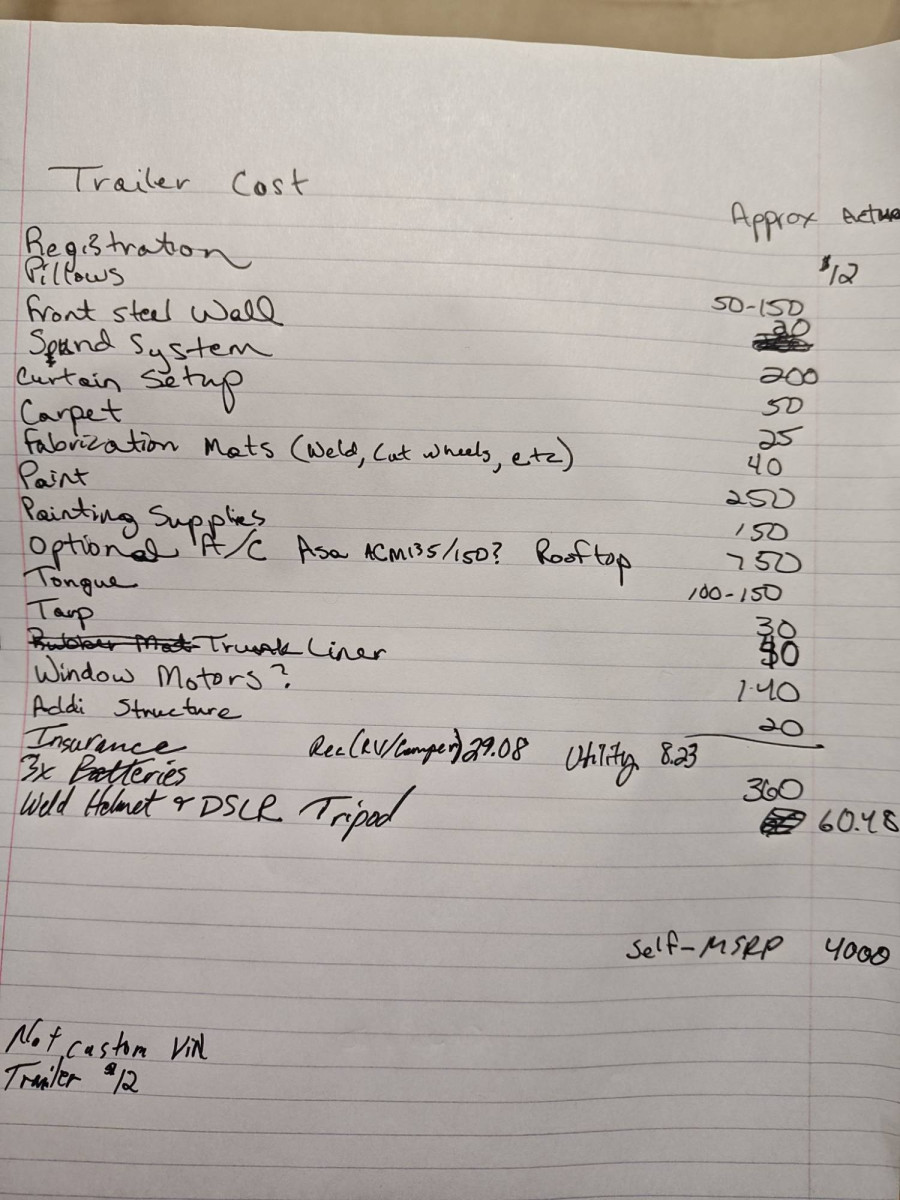 Trailer Cost
Approx Actua
Registration $12
Pillows
Front Steel Wall 50-150
Sound System 20
Curtain Setup 200
Carpet 50
Fabrization Mats (Weld, Cut wheels, etc) 25
Paint 40
Painting Supplies 250
Optional A/C Asa ACM135/150? Rooftop 150
Tongue 750
Tarp 100-150
Rubber Mat Trunk Liner 30
Window Motors? $0
Addi Structure 140
20
Insurance Rec (RV/Camper) 29.08 Utility 8.23
3x Batteries 360
Weld Helmet & DSLR Tripod 60.48
Self-MSRP 4000
Not Custom VIN
Trailer $12